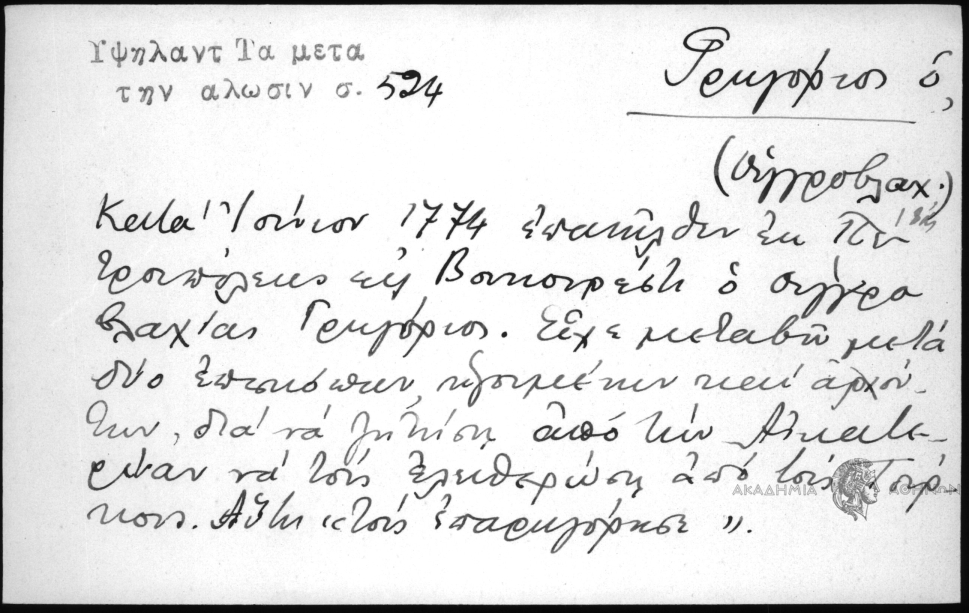 Υψηλαντ Τα μετα
την αλωσιν σ. 524
Γρηγόριος ὁ,
(Οὑγγροβλαχ.)
Κατά Ἰούνιον 1774 ἐπανῆλθεν ἐκ τῆς Πε
τρουπόλεως εἰς Βουκουρέστι ὁ Οὑγγρο
βλαχίας Γρηγόριος. Εἶχε μεταβῆ μετά
δύο ἐπισκόπων, ἡγουμένων καί ἀρχόν-
των, διά νά ζητήσῃ ἀπό τήν Αἰκατε-
ρίναν νά τούς ἐλευθερώσῃ ἀπό τούς Τούρ
κους. Αὕτη «τούς ἐπαρηγόρησε».
ΑΚΑΔΗΜΙΑ ΑΘΗΝΩΝ